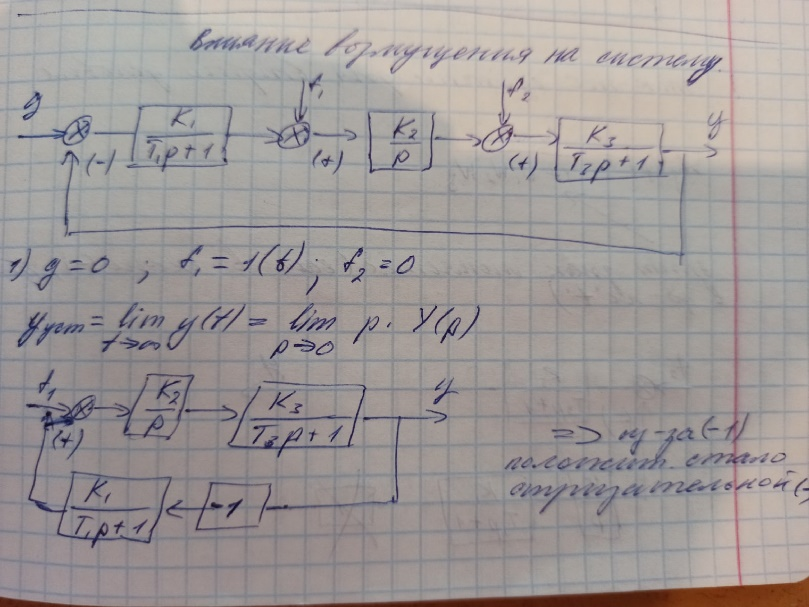 влияние возмущения на систему.
g f₁ f₂ y
K₁/(T₁p+1) K₂/p K₃/(T₂p+1)
(-) (+) (+)
1) g=0 ; f₁ = 1(t) ; f₂ = 0
yуст = lim t→∞ y(t) = lim p→0 p · Y(p)
f₁ K₂/p K₃/(T₂p+1) y
(+)
K₁/(T₁p+1) -1
=> из-за (-1)
положит. стало
отрицательной (-)